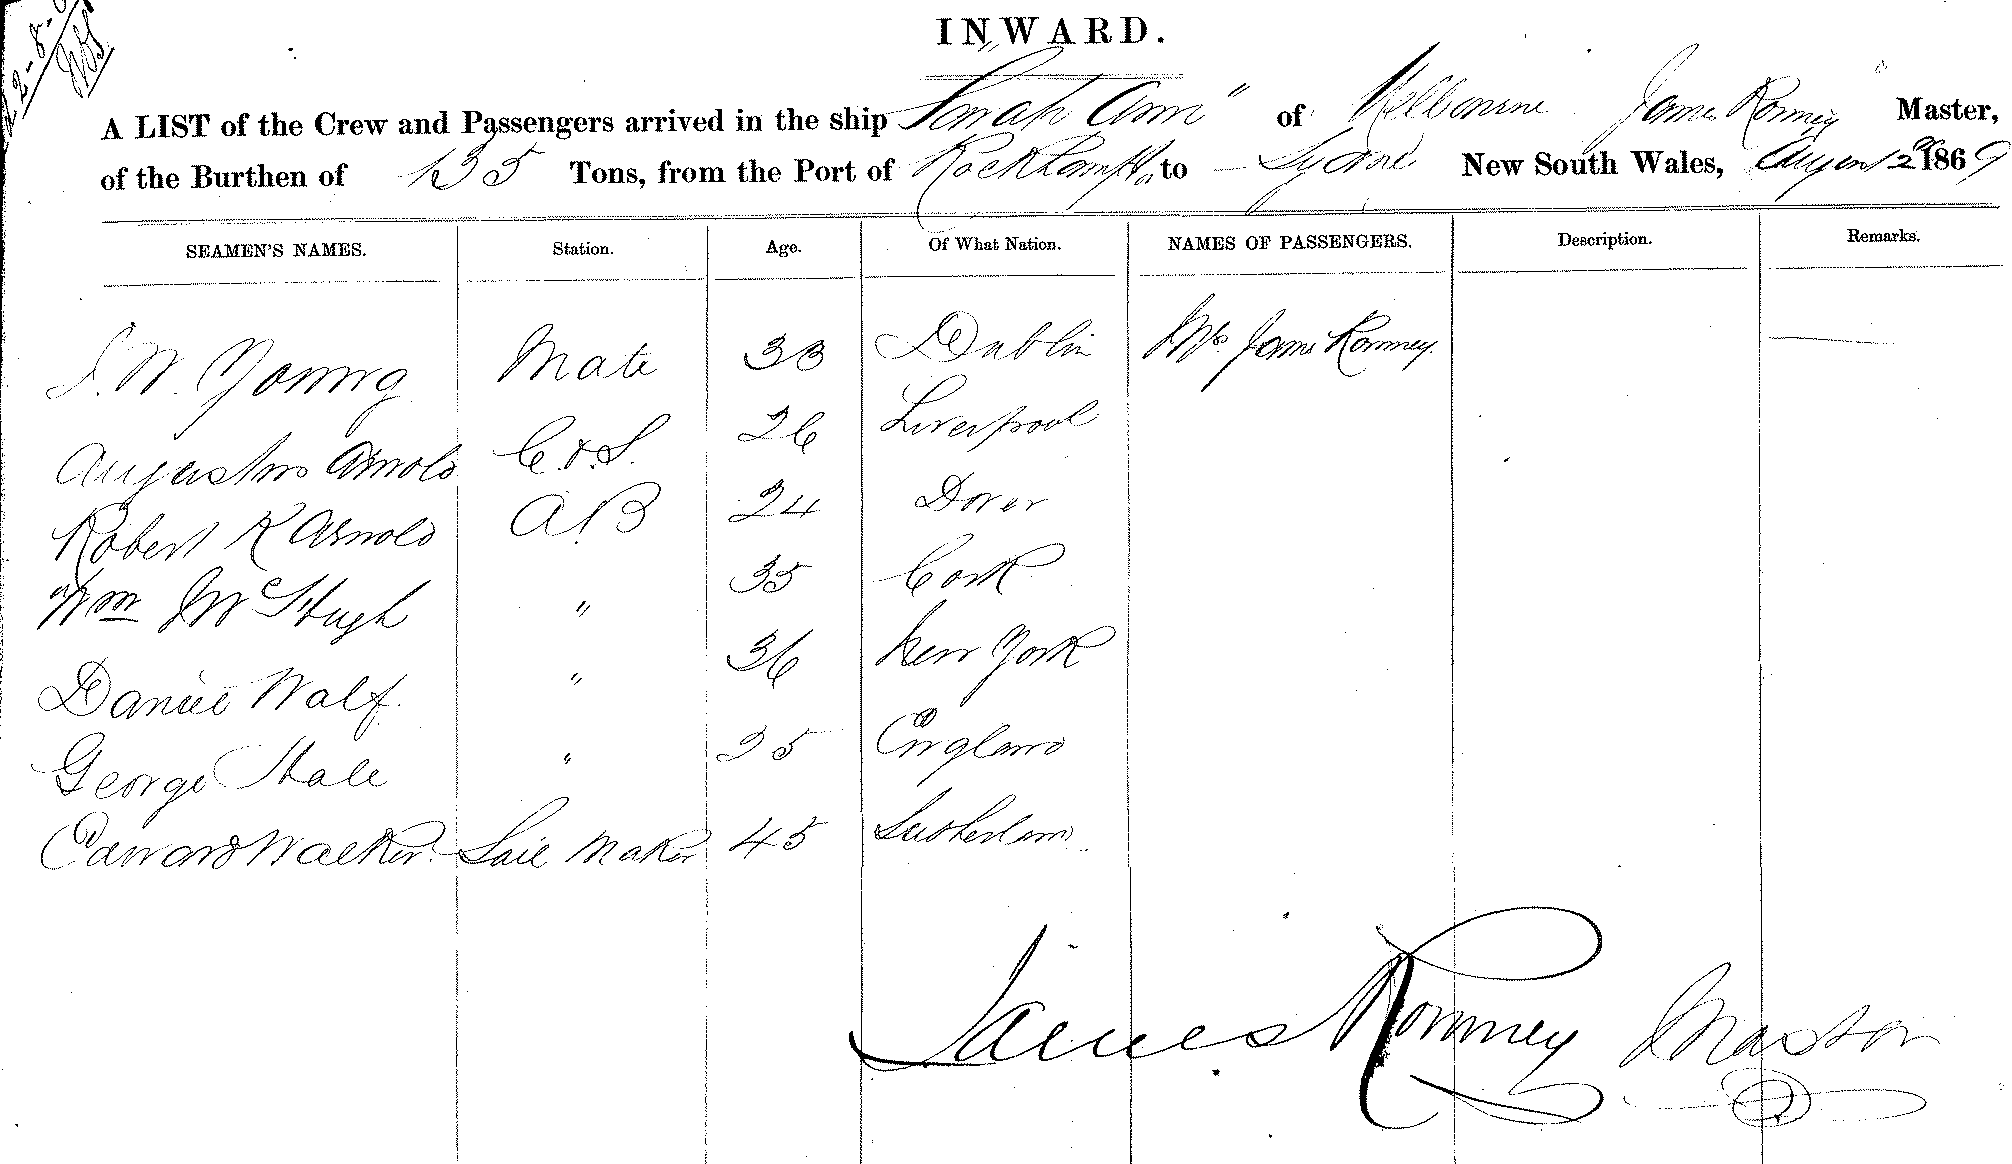 12-8-69
INWARD.
A LIST of the Crew and Passengers arrived in the ship "Sarah Ann" of Melbourne James Romney Master,
of the Burthen of 135 Tons, from the Port of Rockhampton to Sydney New South Wales, August 12th 1869
SEAMEN'S NAMES. Station. Age. Of What Nation. NAMES OF PASSENGERS. Description. Remarks.
J. W. Young Mate 33 Dublin Mrs James Romney.
Augustus Arnold C & S. 26 Liverpool
Robert K Arnold AB 24 Dover
Wm McHugh " 35 Cork
Daniel Walf. " 36 New York
George Hale " 25 England
Edward Walker Sail Maker 45 Sutherland
James Romney Master